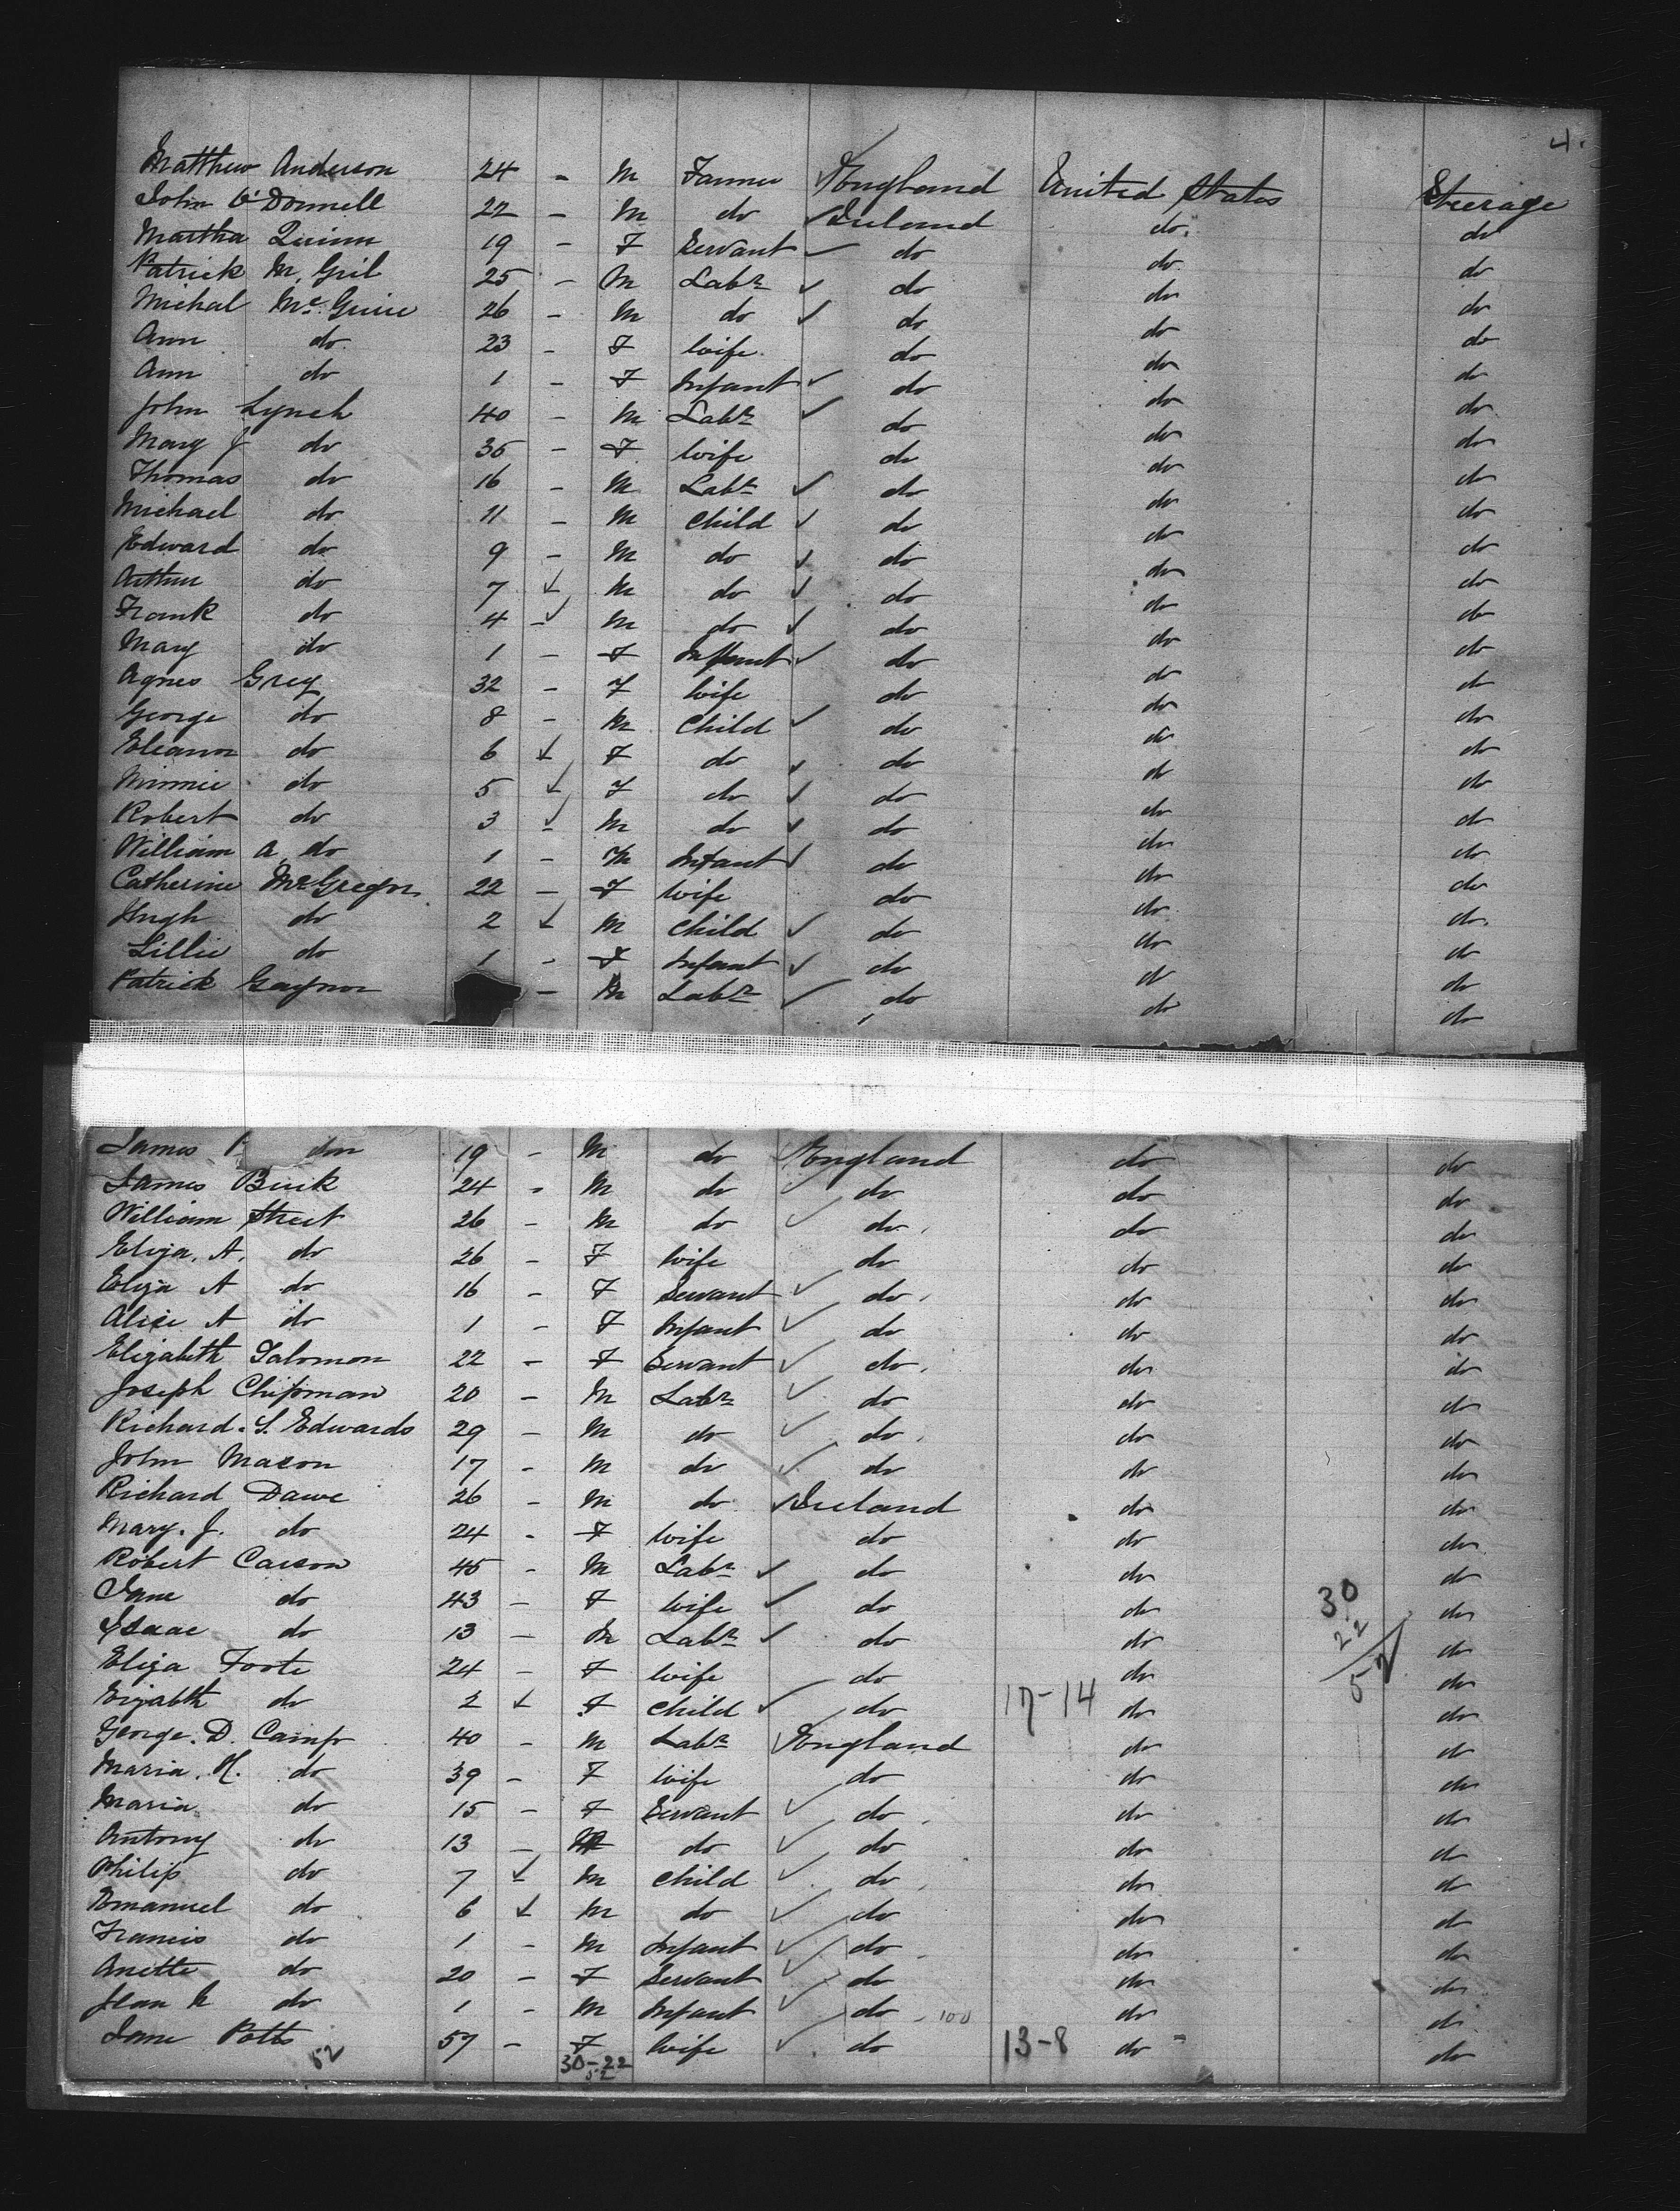 4.
Matthew Anderson 24 - M Farmer England United States Steerage
John O'Donnell 22 - M do Ireland do do
Martha Quinn 19 - F Servant do do do
Patrick Mc Gril 25 - M Labr do do do
Michal Mc Guire 26 - M do do do do
Ann do 23 - F Wife do do do
Ann do 1 - F Infant do do do
John Lynch 40 - M Labr do do do
Mary J do 35 - F Wife do do do
Thomas do 16 - M Labr do do do
Michael do 11 - M Child do do do
Edward do 9 - M do do do do
Arthur do 7 - M do do do do
Frank do 4 - M do do do do
Mary do 1 - F Infant do do do
Agnes Grey 32 - F Wife do do do
George do 8 - M Child do do do
Eleanor do 6 - F do do do do
Minnie do 5 - F do do do do
Robert do 3 - M do do do do
William A. do 1 - M Infant do do do
Catherine McGregor 22 - F Wife do do do
Hugh do 2 - M Child do do do
Lillie do 1 - F Infant do do do
Patrick Gaynor - M Labr do do do
James 19 - M do England do do
James 24 - M do do do do
William Street 26 - M do do do do
Eliza. A. do 26 - F Wife do do do
Eliza A do 16 - F Servant do do do
Alice A do 1 - F Infant do do do
Elizabeth Salomon 22 - F Servant do do do
Joseph Chipman 20 - M Labr do do do
Richard. S. Edwards 29 - M do do do do
John Mason 17 - M do do do do
Richard Dawe 26 - M do Ireland do do
Mary. J. do 24 - F Wife do do do
Robert Carson 45 - M Labr do do do
Jane do 43 - F Wife do do 30 do
Isaac do 13 - M Labr do do 22 do
Eliza Foote 24 - F Wife do do 52 do
Elizabth do 2 - F Child do 17-14 do do
George. D. Camp 40 - M Labr England do do
Maria. H. do 39 - F Wife do do do
Maria do 15 - F Servant do do do
Antony do 13 - M do do do do
Philip do 7 - M Child do do do
Emanuel do 6 - M do do do do
Francis do 1 - M Infant do do do
Anette do 20 - F Servant do do do
Jean do 1 - M Infant do 100 do do
Jane Potts 57 - F Wife do 13-8 do do
52 30-22
52